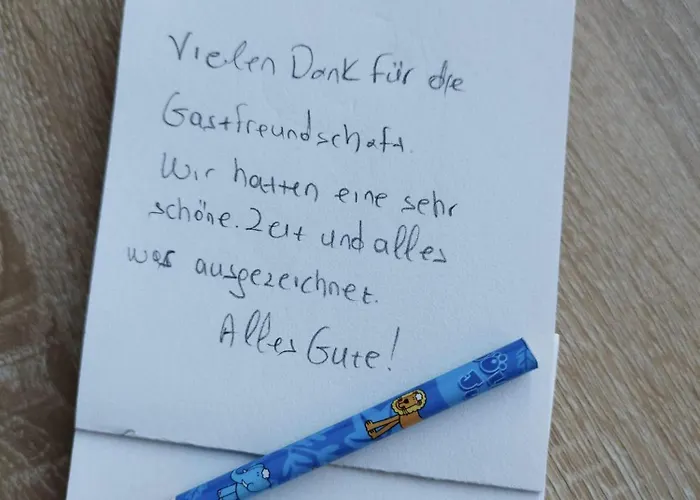 Vielen Dank für die
Gastfreundschaft.
Wir hatten eine sehr
schöne. Zeit und alles
was ausgezeichnet.
Alles Gute!